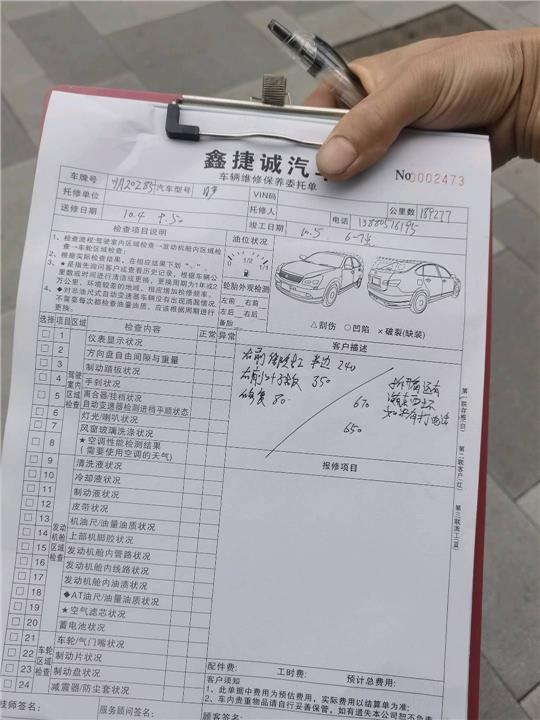 鑫捷诚汽
车辆维修保养委托单
No 0002473
车牌号 汽车型号 VIN码 公里数 189277
托修单位 托修人 电话
送修日期 10.4 竣工日期 10.5
检查项目说明
1、检查流程:驾驶室内区域检查→发动机舱内区域检查→车轮区域检查;
2、根据实际检查结果,在相应结果下划
3、★是指先询问客户或查看历史记录,根据车辆公里数或时间进行清洁或更换,更换周期为1年或2万公里,环境较差的地域,相应增加检修频率。
4、◆对悲油尺式自动变速器车辆没有出现渗漏情况,不需要每次都检查油量油质,应该根据周期进行更换。
油位状况
0 1/2 1/1
轮胎外观检测
左前 右前
左后 右后
备胎
△刮伤 ○凹陷 ×破裂(缺装)
选择 项目 区域 检查内容 正常 异常
客户描述
右前 半边 240
右前 350
80
670
650
报修项目
驾驶室内检查
1 仪表显示状况
2 方向盘自由间隙与重量
3 制动踏板状况
4 手刹状况
5 离合器/挂档状况
自动变速器检测进档平顺状态
6 灯光/喇叭状况
7 风窗玻璃洗涤状况
8 ★空调性能检测结果
(需要使用空调的天气)
发动机舱区域检查
9 清洗液状况
10 冷却液状况
11 制动液状况
12 皮带状况
13 机油尺/油量油质状况
14 上部机脚胶状况
15 发动机舱内管路状况
16 发动机舱内线路状况
17 发动机舱内油渍状况
18 ◆AT油尺/油量油质状况
19 ★空气滤芯状况
20 蓄电池状况
车轮区域检查
21 车轮/气门嘴状况
22 制动片状况
23 制动盘状况
24 减震器/防尘套状况
第一联存根(白)
第二联客户(红)
第三联派工(蓝)
配件费: 工时费: 预计总费用:
客户须知
1、此单据中费用为预估费用,实际费用以结算单为准:
2、车内贵重物品请自行妥善保管,如有遗失本公司恕不负责
技师签名: 服务顾问签名: 顾客签名: